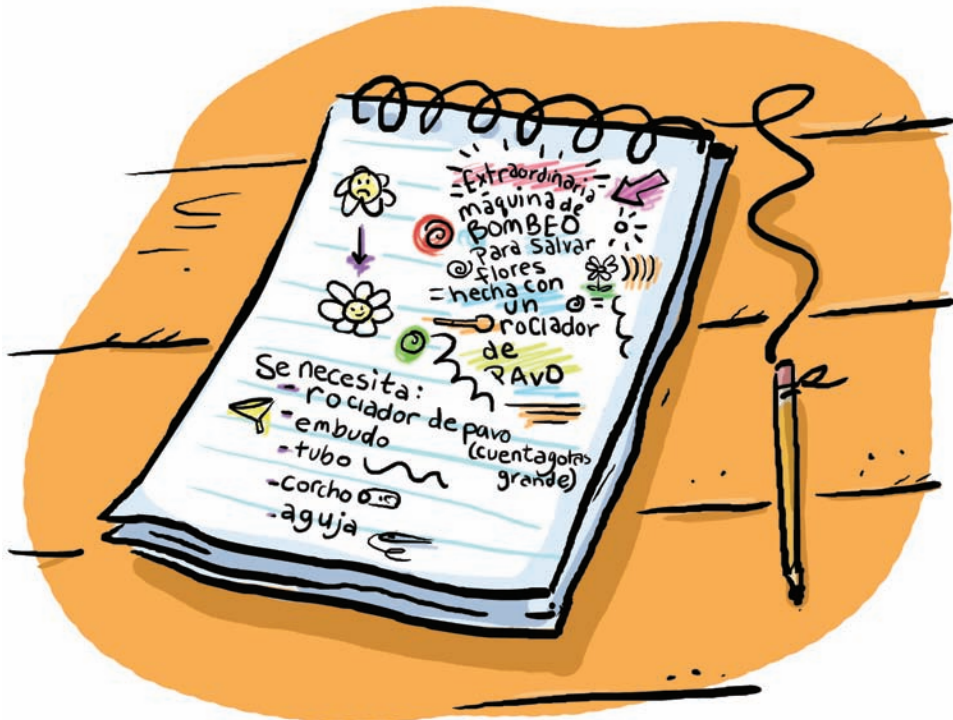 Extraordinaria
máquina de
BOMBEO
Para salvar
flores
hecha con
un
rociador
de
PAVO
Se necesita:
- rociador de pavo
(cuentagotas
grande)
- embudo
- tubo
- corcho
- aguja